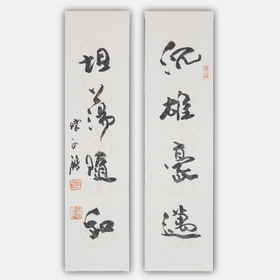 沉雄豪邁
坦蕩隨和